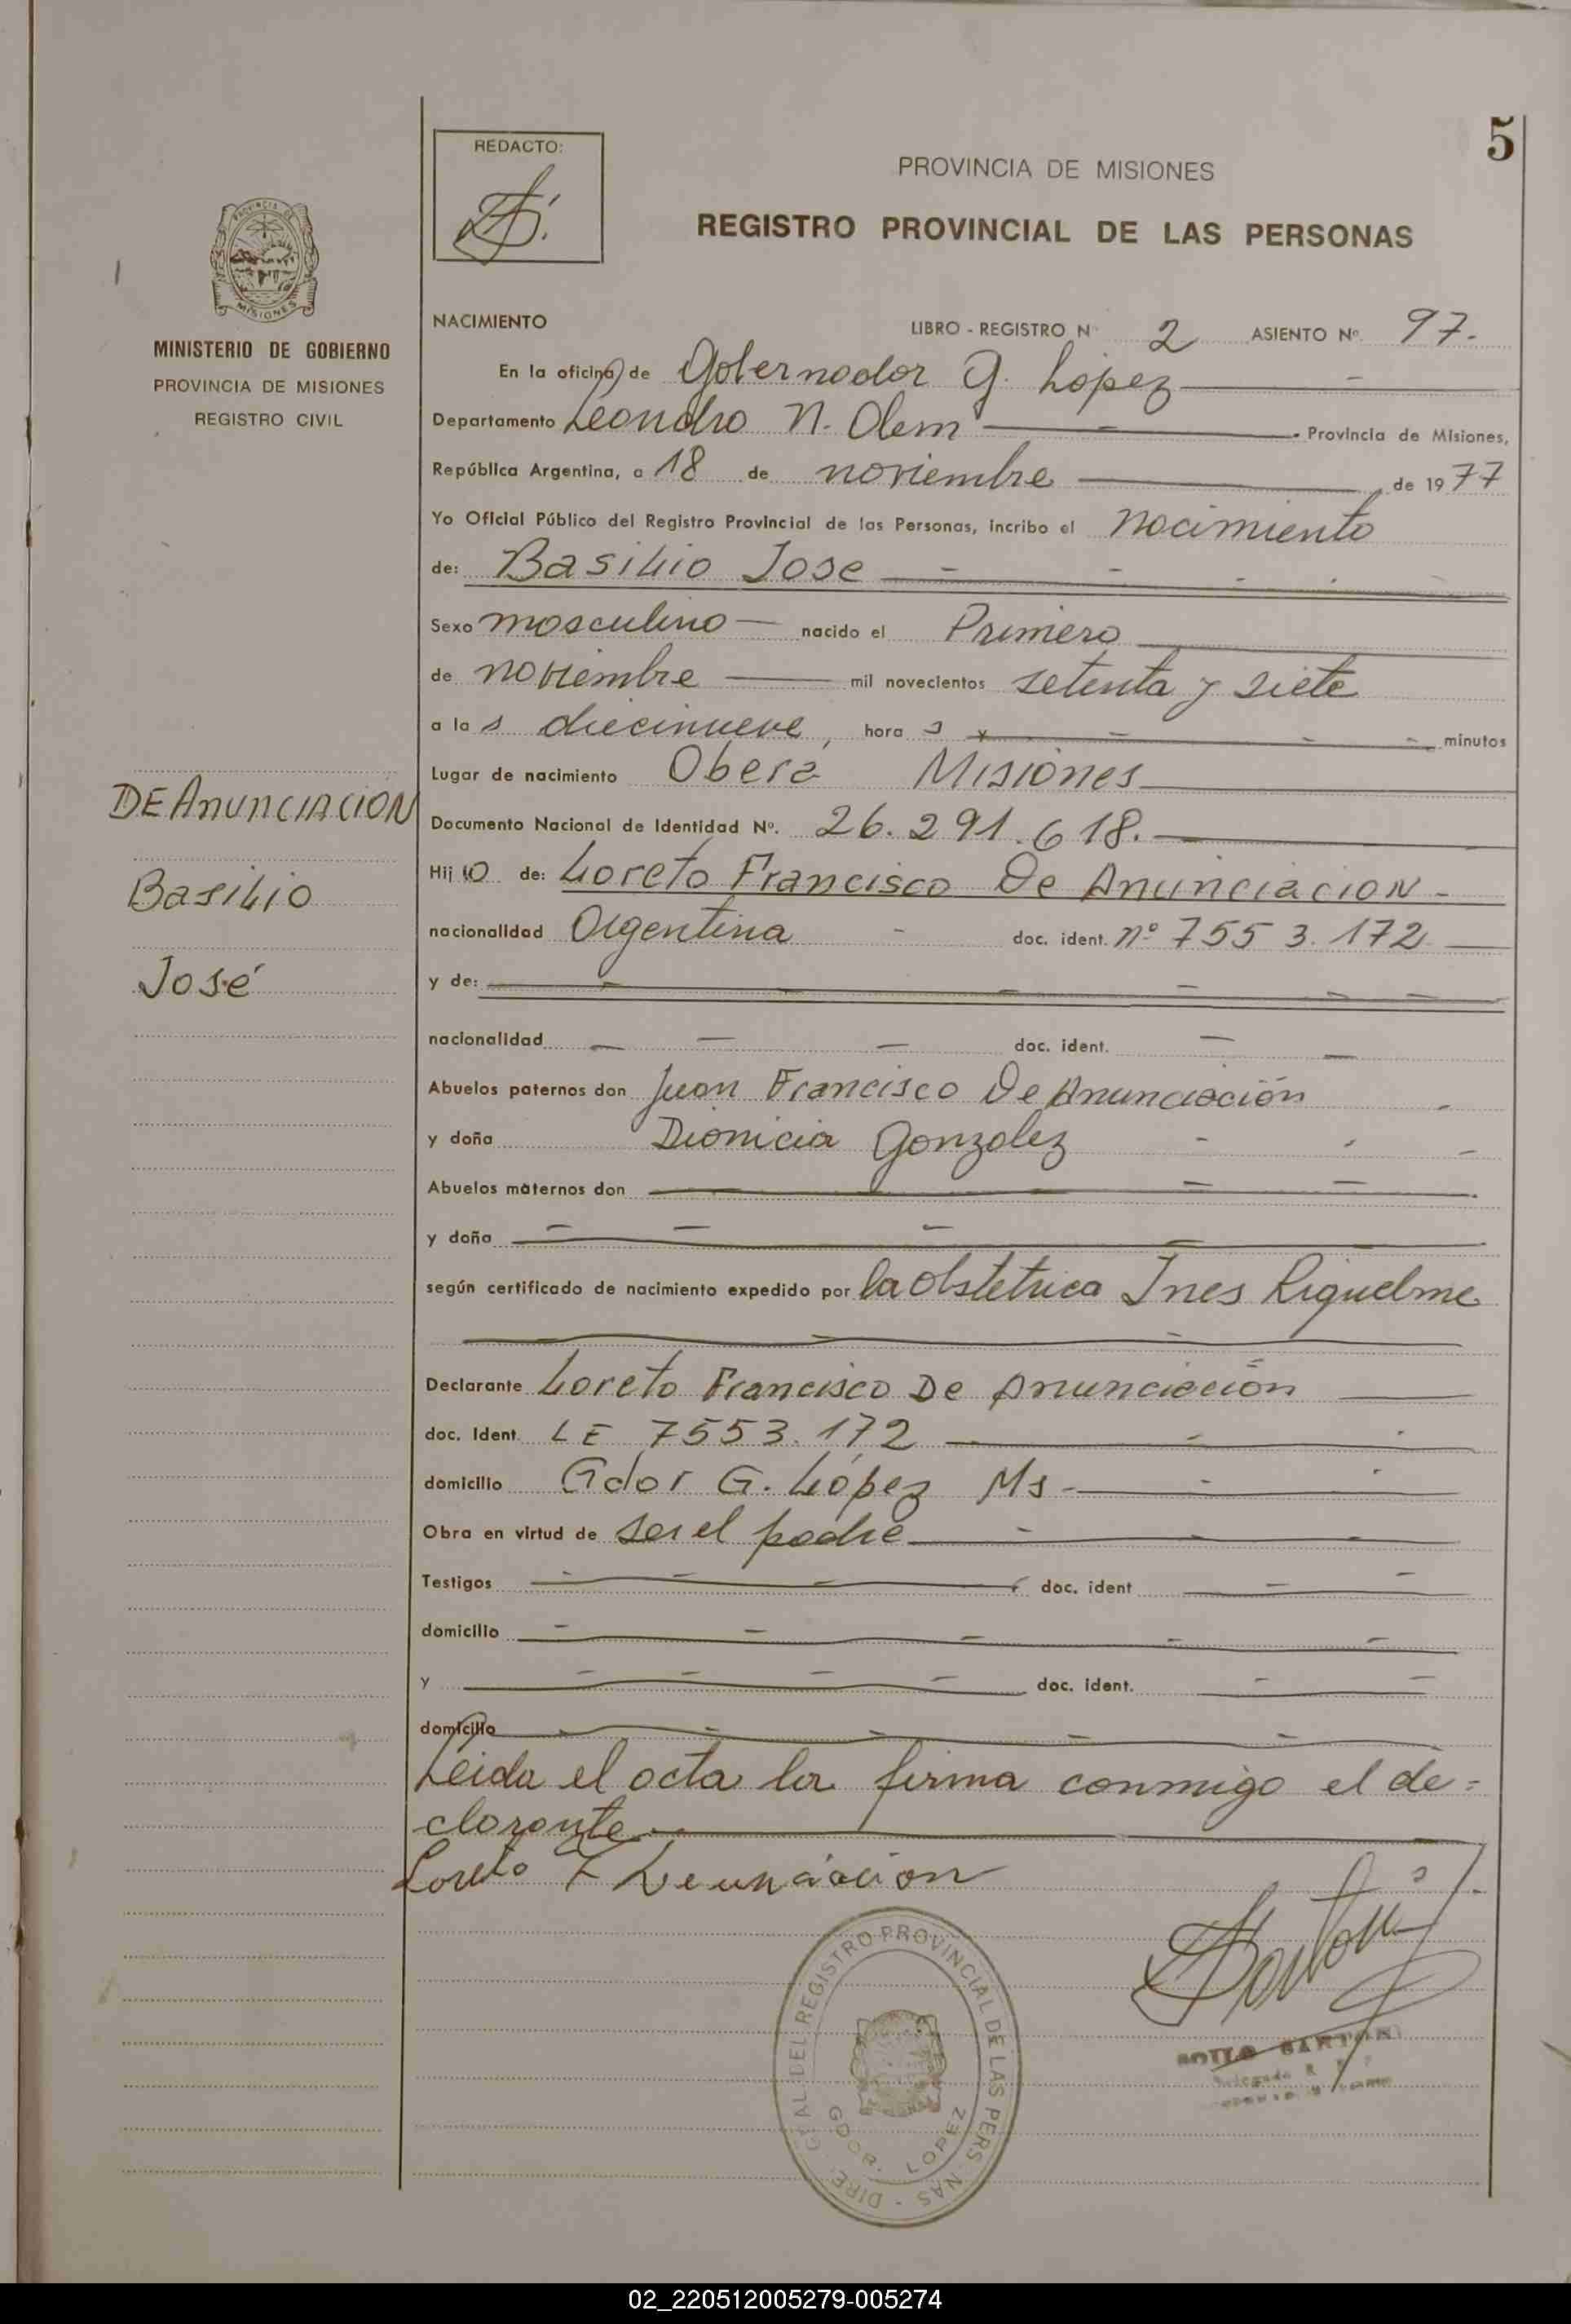 5
REDACTO:
PROVINCIA DE MISIONES
REGISTRO PROVINCIAL DE LAS PERSONAS
PROVINCIA DE
MISIONES
MINISTERIO DE GOBIERNO
PROVINCIA DE MISIONES
REGISTRO CIVIL
NACIMIENTO LIBRO - REGISTRO Nº 2 ASIENTO Nº. 97.
En la oficina de Gobernador G. López
Departamento Leandro N. Alem Provincia de Misiones,
República Argentina, a 18 de noviembre de 1977
Yo Oficial Público del Registro Provincial de las Personas, incribo el nacimiento
de: Basilio Jose
Sexo masculino nacido el Primero
de noviembre mil novecientos setenta y siete
a las diecinueve, horas y minutos
Lugar de nacimiento Oberá Misiones
DE AnunciACION
Documento Nacional de Identidad Nº. 26.291.618.
Basilio
Hijo de: Loreto Francisco De Anunciacion
nacionalidad Argentina doc. ident. nº 7553.172
José
y de:
nacionalidad doc. ident.
Abuelos paternos don Juan Francisco De Anunciación
y doña Dionicia Gonzalez
Abuelos maternos don
y doña
según certificado de nacimiento expedido por la obstetrica Ines Riquelme
Declarante Loreto Francisco De Anunciación
doc. Ident. LE 7553.172
domicilio Gdor G. López Ms
Obra en virtud de ser el padre
Testigos doc. ident
domicilio
y doc. ident.
domicilio
Leida el acta la firma conmigo el de=
clarante
Loreto F
DIRE. GRAL DEL REGISTRO PROVINCIAL DE LAS PERSONAS
GDOR. LOPEZ
02_220512005279-005274